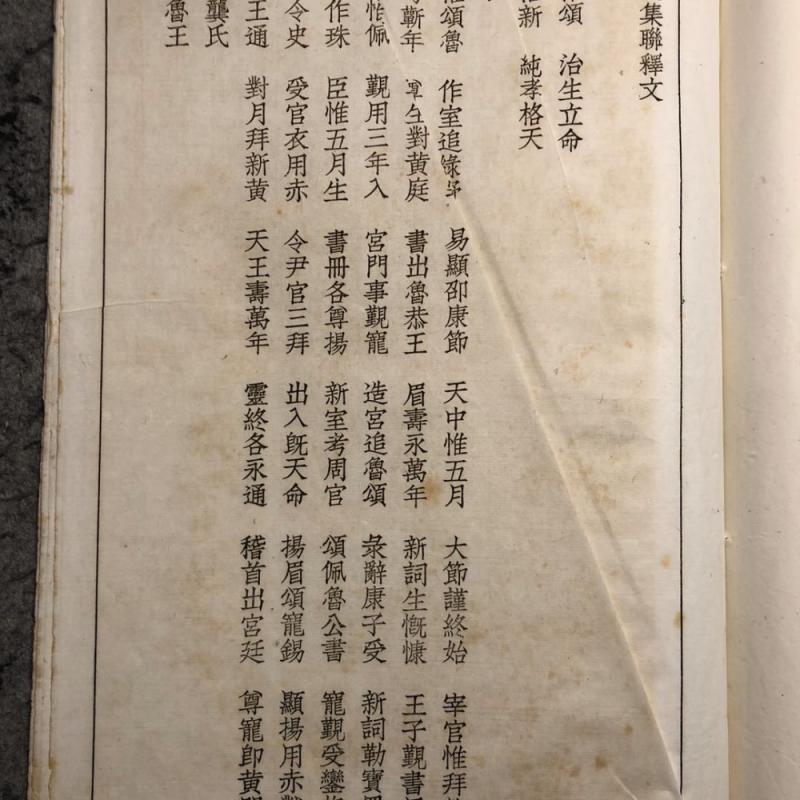 集聯釋文
頌 治生立命
新 純孝格天
頌魯 作室追 易顯邵康節 天中惟五月 大節謹終始 宰官惟拜
蘄年 對黃庭 書出魯恭王 眉壽永萬年 新詞生慨慷 王子覲書
佩 覲用三年入 宮門事覲寵 造宮追魯頌 彔辭康子受 新詞勒寶
作珠 臣惟五月生 書冊各尊揚 新室考周官 頌佩魯公書 寵覲受鑾
令史 受官衣用赤 令尹官三拜 出入既天命 揚眉頌寵錫 顯揚用赤
王通 對月拜新黃 天王壽萬年 靈終各永通 稽首出宮廷 尊寵即黃
龔氏
魯王